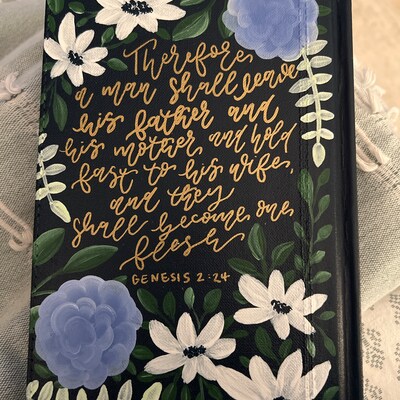 Therefore,
a man shall leave
his father and
his mother and hold
fast to his wife,
and they
shall become one
flesh
GENESIS 2:24